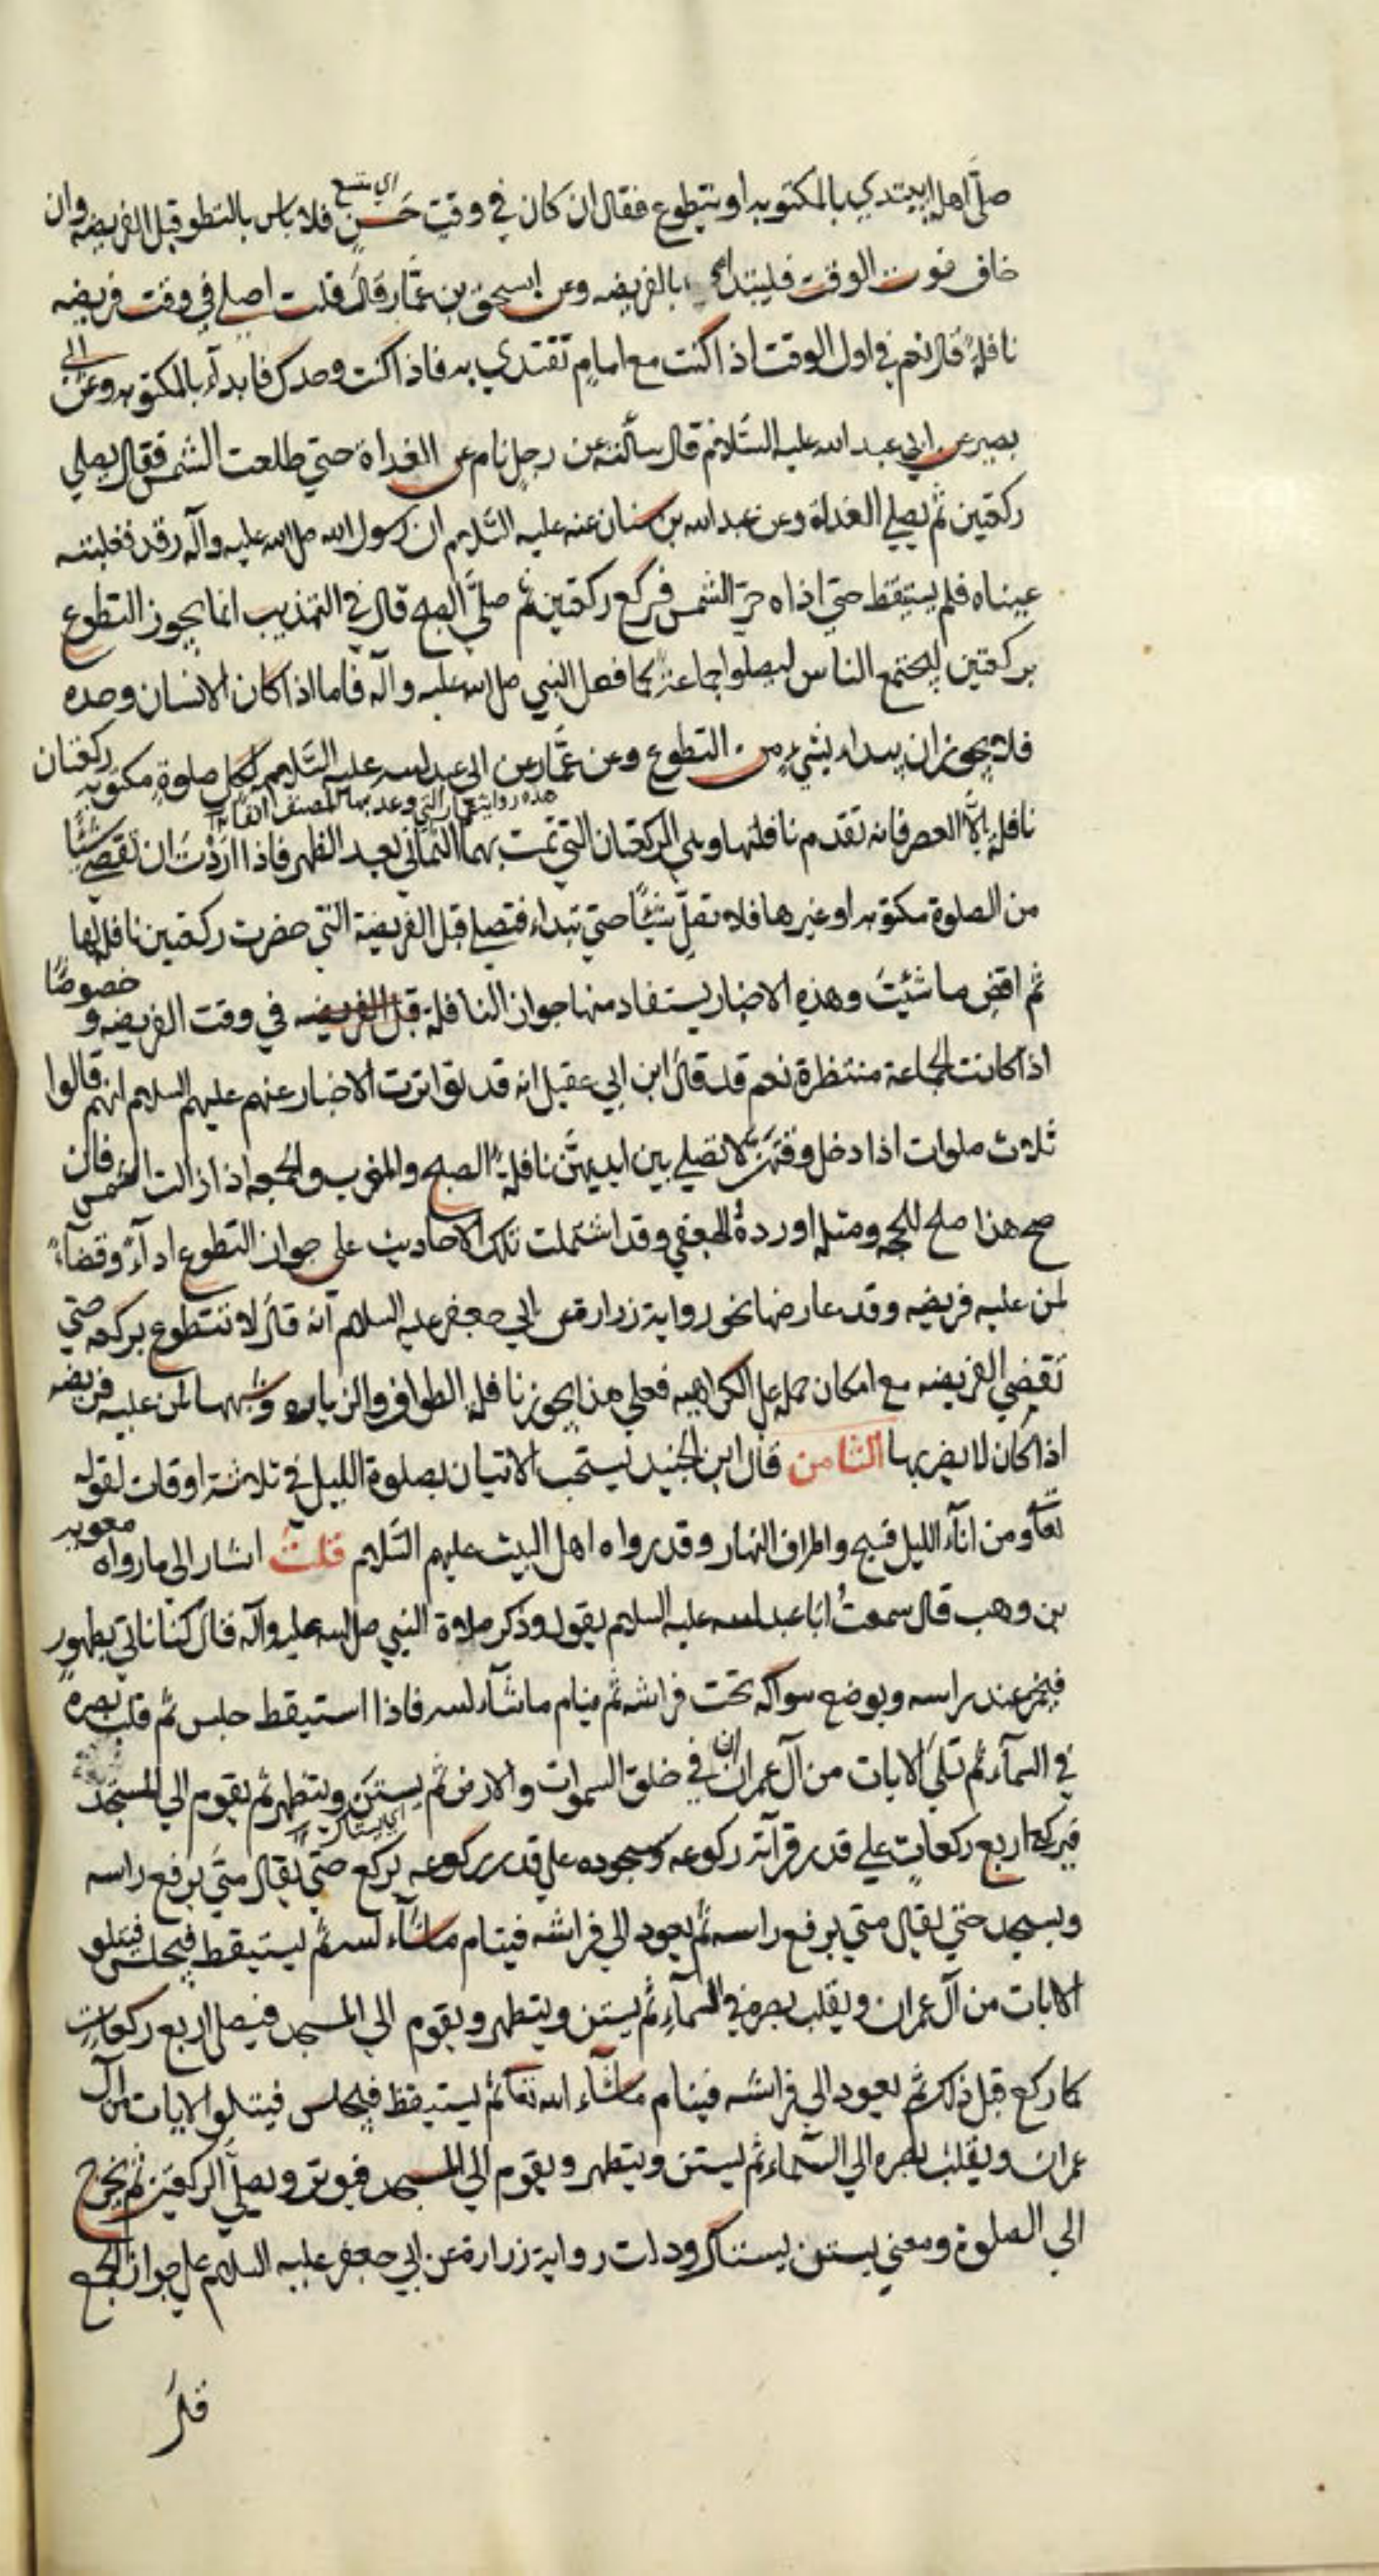 صلى اهله ايبتدي بالمكتوبه او يتطوع فقال ان كان في وقت حسن فلا باس بالتطوع قبل الفريضه وان
اي متسع
خاف فوت الوقت فليبتدا بالفريضه وعن اسحق بن عمار قال قلت اصلي في وقت فريضه
نافلة قال نعم في اول الوقت اذا كنت مع امام تقتدي به فاذا كنت وحدك فابدأ بالمكتوبه وعن ابي
بصير عن ابي عبد الله عليه السلام قال سألته عن رجل نام عن الغداة حتي طلعت الشمس فقال يصلي
ركعتين ثم يصلي الغداة وعن عبد الله بن سنان عنه عليه السلام ان رسول الله صلى الله عليه وآله رقد فغلبته
عيناه فلم يستيقظ حتي اذاه حر الشمس فركع ركعتين ثم صلى الصبح قال في التهذيب انما يجوز التطوع
بركعتين ليجتمع الناس ليصلوا جماعة كما فعل النبي صلى الله عليه وآله فاما اذا كان الانسان وحده
فلا يجوز ان يبداء بشيء من التطوع وعن عمار عن ابي عبد الله عليه السلام لكل صلوة مكتوبه ركعتان
هذه رواية عمار التي وعد بها المصنف آنفا
نافلة الا العصر فانه تقدم نافلتها وهي الركعتان التي تمت بهما الثماني بعد الظهر فاذا اردت ان تقضي شيئا
من الصلوة مكتوبه او غيرها فلا تصل شيئا حتي تبداء فتصلي قبل الفريضة التي حضرت ركعتين نافلة لها
ثم اقض ما شئت وهذه الاخبار يستفاد منها جواز النافلة قبل الفريضه في وقت الفريضه و خصوصا
اذا كانت الجماعة منتظرة نعم قد قال ابن ابي عقيل انه قد تواترت الاخبار عنهم عليهم السلام انهم قالوا
ثلاث صلوات اذا دخل وقتهن لا تصلي بين ايديهن نافلة الصبح والمغرب والجمعه اذا زالت الشمس فان
صح هذا صلح للحجه ومثله اورده الجعفي وقد اشتملت تلك الاحاديث على جواز التطوع اداء وقضاء
لمن عليه فريضه وقد عارضها نحو رواية زرارة عن ابي جعفر عليه السلام انه قال لا تتطوع بركعه حتي
تقضي الفريضه مع امكان حمله على الكراهيه فعلي هذا يجوز نافلة الطواف والزياره وشبهها لمن عليه فريضه
اذا كان لا يضر بها الثامن قال ابن الجنيد يستحب الاتيان بصلوة الليل في ثلاثة اوقات لقوله
تعا ومن اناء الليل فسبح واطراف النهار وقد رواه اهل البيت عليهم السلام قلت اشار الى ما رواه معويه
بن وهب قال سمعت ابا عبد الله عليه السلام يقول وذكر صلاة النبي صلى الله عليه وآله قال كنا ناتي بطهور
فيخمر عند راسه ويوضع سواكه تحت فراشه ثم ينام ما شاء الله فاذا استيقظ جلس ثم قلب بصره
في السماء ثم تلى الايات من آل عمران ان في خلق السموات والارض ثم يستن ويتطهر ثم يقوم الي المسجد
اي يستاك
فيركع اربع ركعات علي قدر قرآته ركوعه وسجوده علي قدر ركوعه يركع حتي يقال متي يرفع راسه
ويسجد حتي يقال متي يرفع راسه ثم يعود الي فراشه فينام ما شاء الله ثم يستيقظ فيجلس فيتلو
الايات من آل عمران ويقلب بصره في السماء ثم يستن ويتطهر ويقوم الي المسجد فيصلي اربع ركعات
كما ركع قبل ذلك ثم يعود الي فراشه فينام ما شاء الله تعا ثم يستيقظ فيجلس فيتلو الايات من آل
عمران ويقلب بصره الي السماء ثم يستن ويتطهر ويقوم الي المسجد فيوتر ويصلي الركعتين ثم يخرج
الي الصلوة ومعني يستن يستاك ودلت رواية زرارة عن ابي جعفر عليه السلام على جواز الجمع